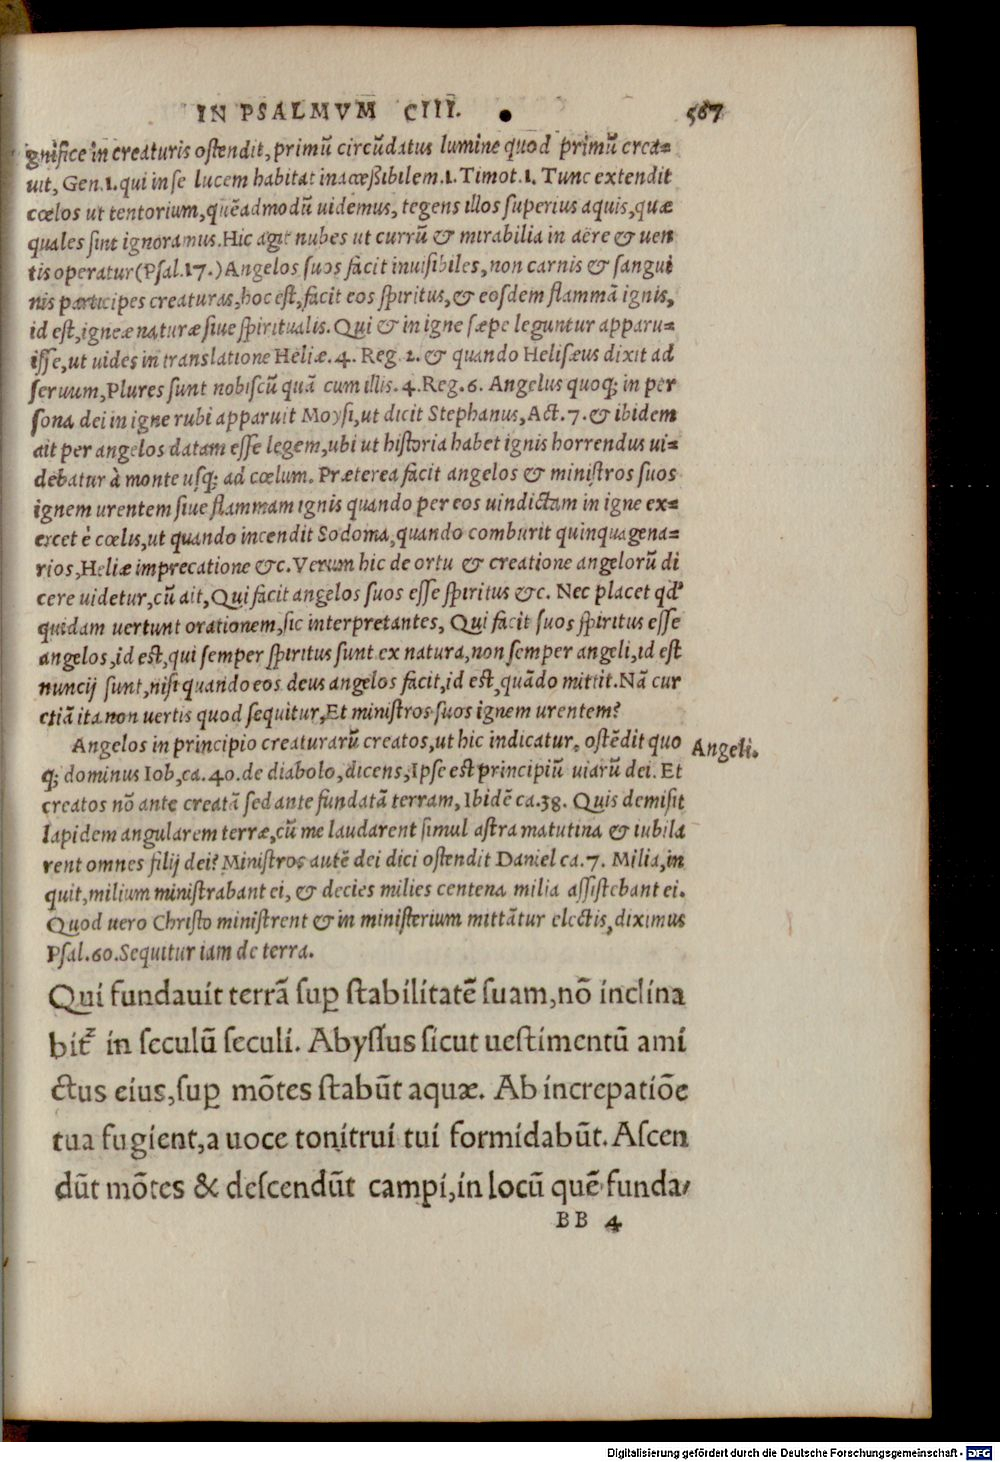 IN PSALMVM CIII. 567
gnifice in creaturis ostendit, primũ circũdatus lumine quod primũ crea=
uit, Gen.1. qui in se lucem habitat inacceßibilem.1. Timot.1. Tunc extendit
cœlos ut tentorium, quẽadmodũ uidemus, tegens illos superius aquis, quæ
quales sint ignoramus. Hic agit nubes ut currũ & mirabilia in aëre & uen
tis operatur (Psal.17.) Angelos suos facit inuisibiles, non carnis & sangui
nis participes creaturas, hoc est, facit eos spiritus, & eosdem flammã ignis,
id est, igneæ naturæ siue spiritualis. Qui & in igne sæpe leguntur apparu=
isse, ut uides in translatione Heliæ. 4. Reg. 2. & quando Helisæus dixit ad
seruum, Plures sunt nobiscũ quã cum illis. 4. Reg. 6. Angelus quoq; in per
sona dei in igne rubi apparuit Moysi, ut dicit Stephanus, Act. 7. & ibidem
ait per angelos datam esse legem, ubi ut historia habet ignis horrendus ui=
debatur à monte usq; ad cœlum. Præterea facit angelos & ministros suos
ignem urentem siue flammam ignis quando per eos uindictam in igne ex=
ercet è cœlis, ut quando incendit Sodoma, quando comburit quinquagena=
rios, Heliæ imprecatione &c. Verum hic de ortu & creatione angelorũ di
cere uidetur, cũ ait, Qui facit angelos suos esse spiritus &c. Nec placet qd'
quidam uertunt orationem, sic interpretantes, Qui facit suos spiritus esse
angelos, id est, qui semper spiritus sunt ex natura, non semper angeli, id est
nuncij sunt, nisi quando eos deus angelos facit, id est, quãdo mittit. Nã cur
etiã ita non uertis quod sequitur, Et ministros suos ignem urentem?
Angelos in principio creaturarũ creatos, ut hic indicatur, ostẽdit quo
q; dominus Iob, ca. 40. de diabolo, dicens, Ipse est principiũ uiarũ dei. Et
creatos nõ ante creatã sed ante fundatã terram, Ibidẽ ca. 38. Quis demisit
lapidem angularem terræ, cũ me laudarent simul astra matutina & iubila
rent omnes filij dei? Ministros autẽ dei dici ostendit Daniel ca. 7. Milia, in
quit, milium ministrabant ei, & decies milies centena milia assistebant ei.
Quod uero Christo ministrent & in ministerium mittãtur electis, diximus
Psal. 60. Sequitur iam de terra.
Angeli.
Qui fundauit terrã suꝑ stabilitatẽ suam, nõ inclina
bit᷑ in seculũ seculi. Abyssus sicut uestimentũ ami
ctus eius, suꝑ mõtes stabũt aquæ. Ab increpatiõe
tua fugient, a uoce tonitrui tui formidabũt. Ascen
dũt mõtes & descendũt campi, in locũ quẽ funda/
BB 4
Digitalisierung gefördert durch die Deutsche Forschungsgemeinschaft - DFG